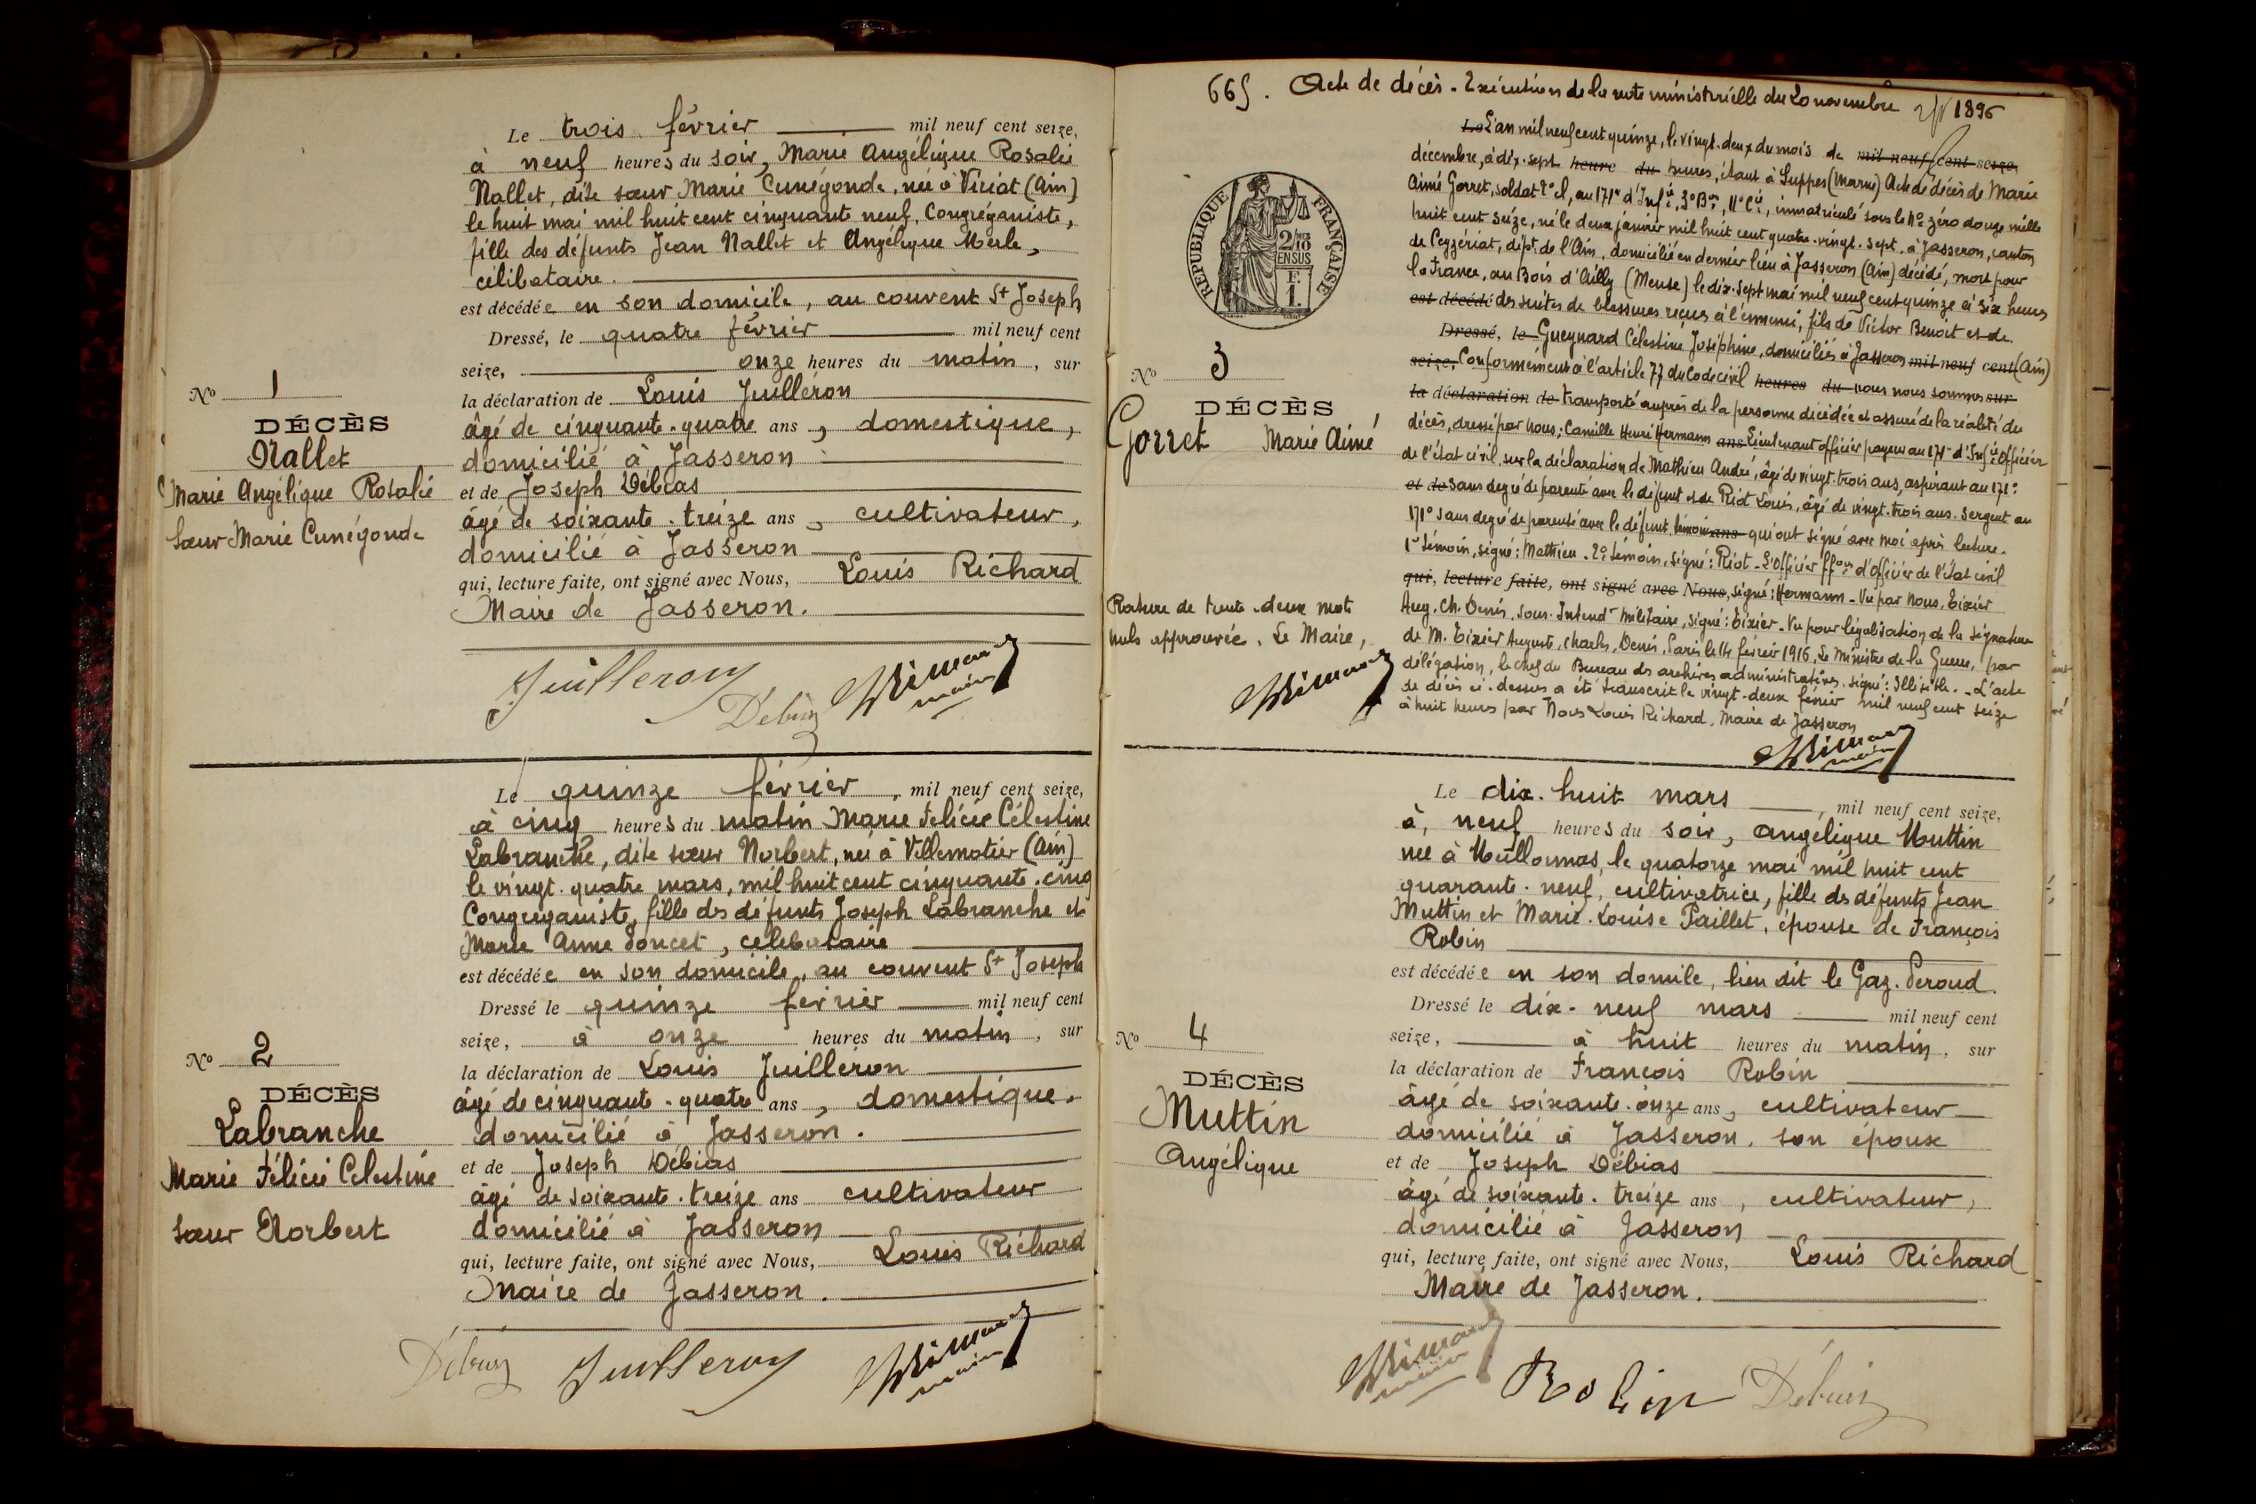 Le trois février mil neuf cent seize,
à neuf heures du soir, Marie Angélique Rosalie
Nallet, dite sœur Marie Cunégonde, née à Viriat (Ain)
le huit mai mil huit cent cinquante neuf, Congréganiste,
fille des défunts Jean Nallet et Angélique Merle,
célibataire.
est décédée en son domicile, au couvent St Joseph
Dressé, le quatre février mil neuf cent
seize, onze heures du matin, sur
la déclaration de Louis Juilléron
âgé de cinquante-quatre ans, domestique,
domicilié à Jasseron
et de Joseph Débias
âgé de soixante-treize ans, cultivateur,
domicilié à Jasseron
qui, lecture faite, ont signé avec Nous, Louis Richard
Maire de Jasseron.
No 1
DÉCÈS
Nallet
Marie Angélique Rosalie
Sœur Marie Cunégonde
Juilleron
Débias
maire
Le quinze février, mil neuf cent seize,
à cinq heures du matin Marie Félicie Célestine
Labranche, dite sœur Norbert, née à Villemotier (Ain)
le vingt-quatre mars, mil huit cent cinquante-cinq
Congréganiste, fille des défunts Joseph Labranche et
Marie Anne Poncet, célebataire
est décédée en son domicile, au couvent St Joseph
Dressé le quinze février mil neuf cent
seize, à onze heures du matin, sur
la déclaration de Louis Juilléron
âgé de cinquante-quatre ans, domestique.
domicilié à Jasseron.
et de Joseph Débias
âgé de soixante-treize ans cultivateur
domicilié à Jasseron
qui, lecture faite, ont signé avec Nous, Louis Richard
Maire de Jasseron.
No 2
DÉCÈS
Labranche
Marie Félicie Celestine
sœur Norbert
Débias Juilleron
maire
665. Acte de décès - Exécution de la note ministérielle du 20 novembre 1896
Le L'an mil neuf cent quinze, le vingt-deux du mois de mil neuf cent seize,
décembre, à dix-sept heure du heures, étant à Suippes (Marne) Acte de décès de Marie
Aimé Gorret, soldat 2e cl, au 171e d'Infie, 3e Bon, 11e Cie, immatriculé sous le No zéro douze mille
huit cent seize, né le deux janvier mil huit cent quatre-vingt-sept à Jasseron, canton
de Ceyzériat, dépt. de l'Ain, domicilié en dernier lieu à Jasseron (Ain) décédé, mort pour
la France, au Bois d'Ailly (Meuse) le dix-sept mai mil neuf cent quinze à six heures
est décédé des suites de blessures reçues à l'ennemi, fils de Victor Benoit et de
Dressé, le Gueynard Célestine Joséphine, domiciliés à Jasseron mil neuf cent (Ain)
seize, Conformément à l'article 77 du Code civil heures du nous nous sommes sur
la déclaration de transporté auprès de la personne décédée et assuré de la réalité du
décès, dressé par Nous, Camille Henri Hermann ans Lieutenant officier payeur au 171e d'Infie Officier
de l'état civil, sur la déclaration de Mathieu André, âgé de vingt-trois ans, aspirant au 171e
et de sans degré de parenté avec le défunt et de Riot Louis, âgé de vingt-trois ans, sergent au
171e sans degré de parenté avec le défunt, témoins ans qui ont signé avec moi après lecture.
1er témoin, signé: Mathieu - 2e témoin, signé: Riot - L'Officier ffons d'officier de l'état civil
qui, lecture faite, ont signé avec Nous, signé: Hermann - Vu par Nous, Tixier
Aug. Ch. Denis, Sous-Intendt militaire, signé: Tixier - Vu pour légalisation de la signature
de M. Tixier Auguste, Charles, Denis, Paris le 14 février 1916, Le Ministre de la Guerre, par
délégation, le chef du Bureau des archives administratives. signé: Illisible. - L'acte
de décès ci-dessus a été transcrit le vingt-deux février mil neuf cent seize
à huit heures par Nous Louis Richard, Maire de Jasseron
maire
RÉPUBLIQUE FRANÇAISE
2/10
EN SUS
1 F.
No 3
DÉCÈS
Gorret Marie Aimé
Rature de trente-deux mots
nuls approuvée. Le Maire,
Le dix-huit mars, mil neuf cent seize,
à, neuf heures du soir, Angélique Muttin
née à Meillonnas, le quatorze mai mil huit cent
quarante-neuf, cultivatrice, fille des défunts Jean
Muttin et Marie-Louise Paillet, épouse de François
Robin
est décédée en son domile, lieu dit le Gaz-Peroud.
Dressé le dix-neuf mars mil neuf cent
seize, à huit heures du matin, sur
la déclaration de François Robin
âgé de soixante-onze ans, cultivateur
domicilié à Jasseron, son époux
et de Joseph Débias
âgé de soixante-treize ans, cultivateur,
domicilié à Jasseron
qui, lecture faite, ont signé avec Nous, Louis Richard
Maire de Jasseron.
No 4
DÉCÈS
Muttin
Angélique
maire
Robin Débias